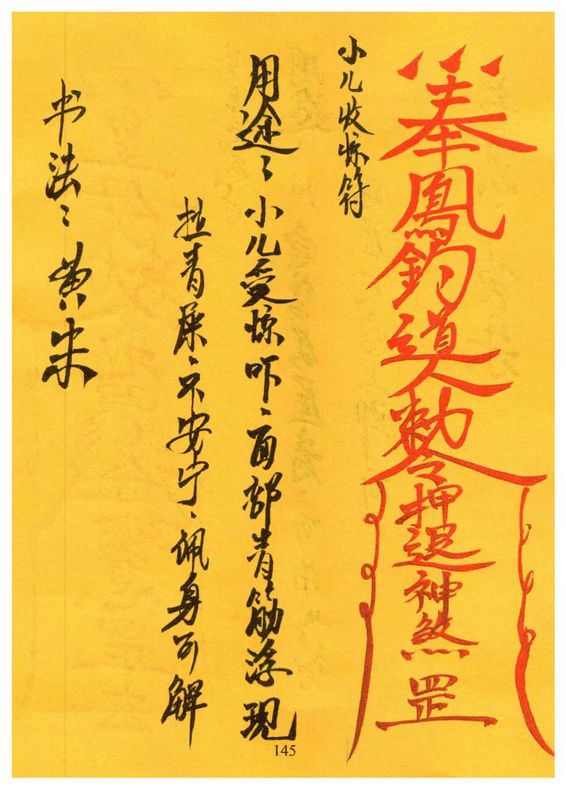 奉鳳鈞道人勅令押退神煞罡
小儿收惊符
用途：小儿受惊吓、面部青筋浮现
拉青屎、不安宁、佩身可解
书法：黄朱
145